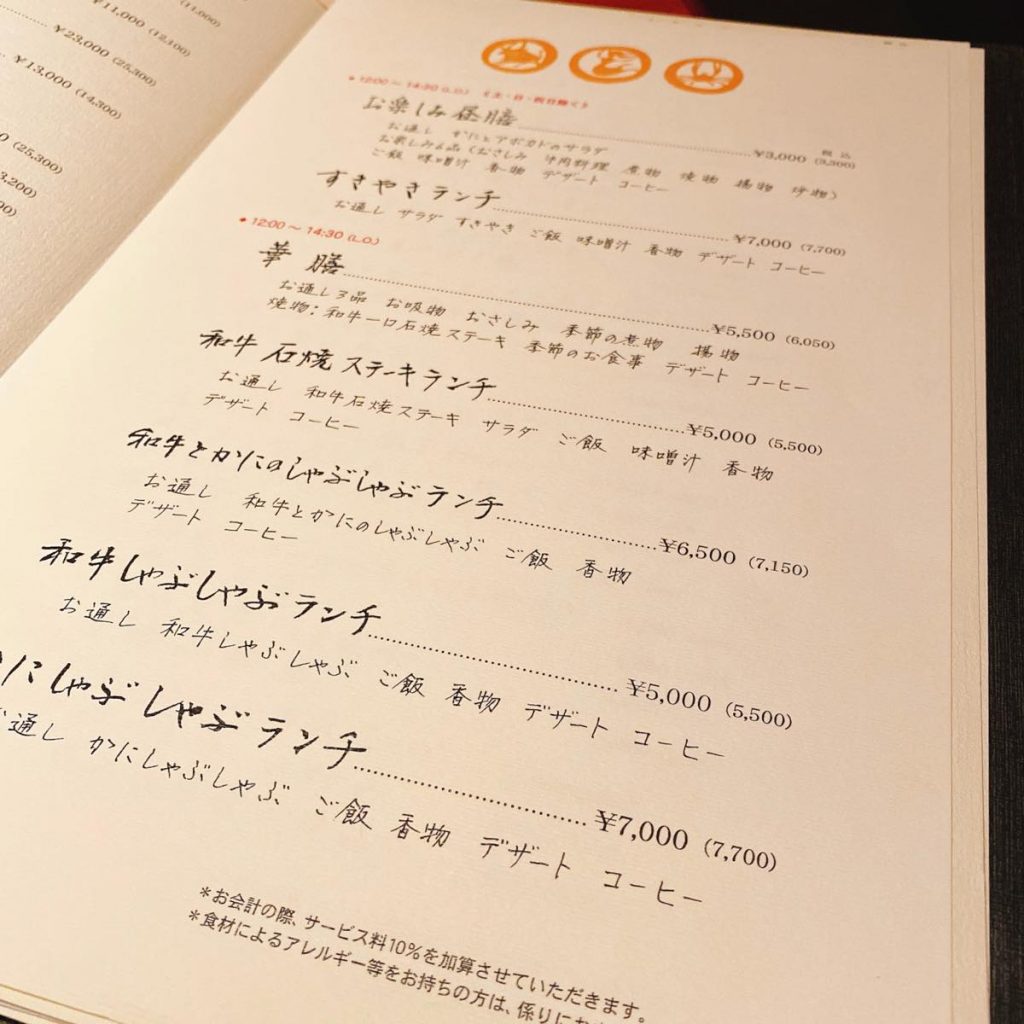 ¥11,000 (12,100)
(11,000)
¥23,000 (25,300)
¥13,000 (14,300)
(25,300)
● 12:00〜14:30 (L.O.) 《土・日・祝日除く》
税込
お楽しみ昼膳 ¥3,000 (3,300)
お通し かにとアボカドのサラダ
お楽しみ6品（おさしみ 牛肉料理 煮物 焼物 揚物 酢物）
ご飯 味噌汁 香物 デザート コーヒー
すきやきランチ ¥7,000 (7,700)
お通し サラダ すきやき ご飯 味噌汁 香物 デザート コーヒー
● 12:00〜14:30 (L.O.)
華膳 ¥5,500 (6,050)
お通し3品 お吸物 おさしみ 季節の煮物 揚物
焼物；和牛一口石焼ステーキ 季節のお食事 デザート コーヒー
和牛 石焼ステーキランチ ¥5,000 (5,500)
お通し 和牛石焼ステーキ サラダ ご飯 味噌汁 香物
デザート コーヒー
和牛とかにのしゃぶしゃぶランチ ¥6,500 (7,150)
お通し 和牛とかにのしゃぶしゃぶ ご飯 香物
デザート コーヒー
和牛しゃぶしゃぶランチ ¥5,000 (5,500)
お通し 和牛しゃぶしゃぶ ご飯 香物 デザート コーヒー
かにしゃぶしゃぶランチ ¥7,000 (7,700)
お通し かにしゃぶしゃぶ ご飯 香物 デザート コーヒー
＊お会計の際、サービス料10%を加算させていただきます。
＊食材によるアレルギー等をお持ちの方は、係りに